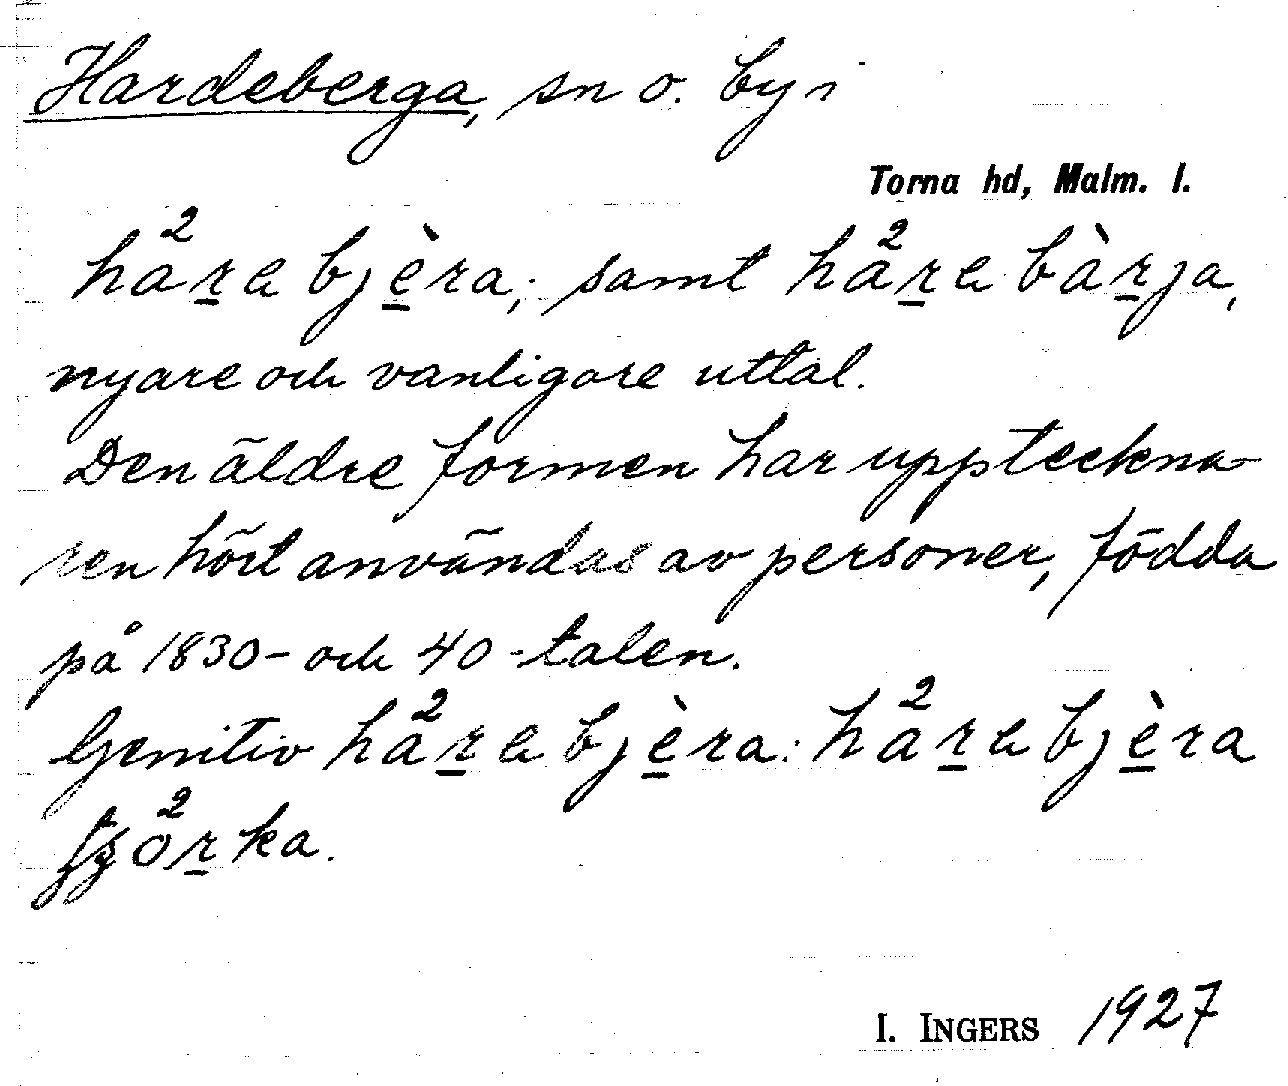 Hardeberga, sn o. by i
Torna hd, Malm. l.
hå²r̲a bjè̲ra; samt hå²r̲a bàr̲ja,
nyare och vanligare uttal.
Den äldre formen har uppteckna-
ren hört användas av personer, födda
på 1830- och 40-talen.
Genitiv hå²r̲a bjè̲ra: hå²r̲a bjè̲ra
ö²r̲ka.
I. INGERS 1927